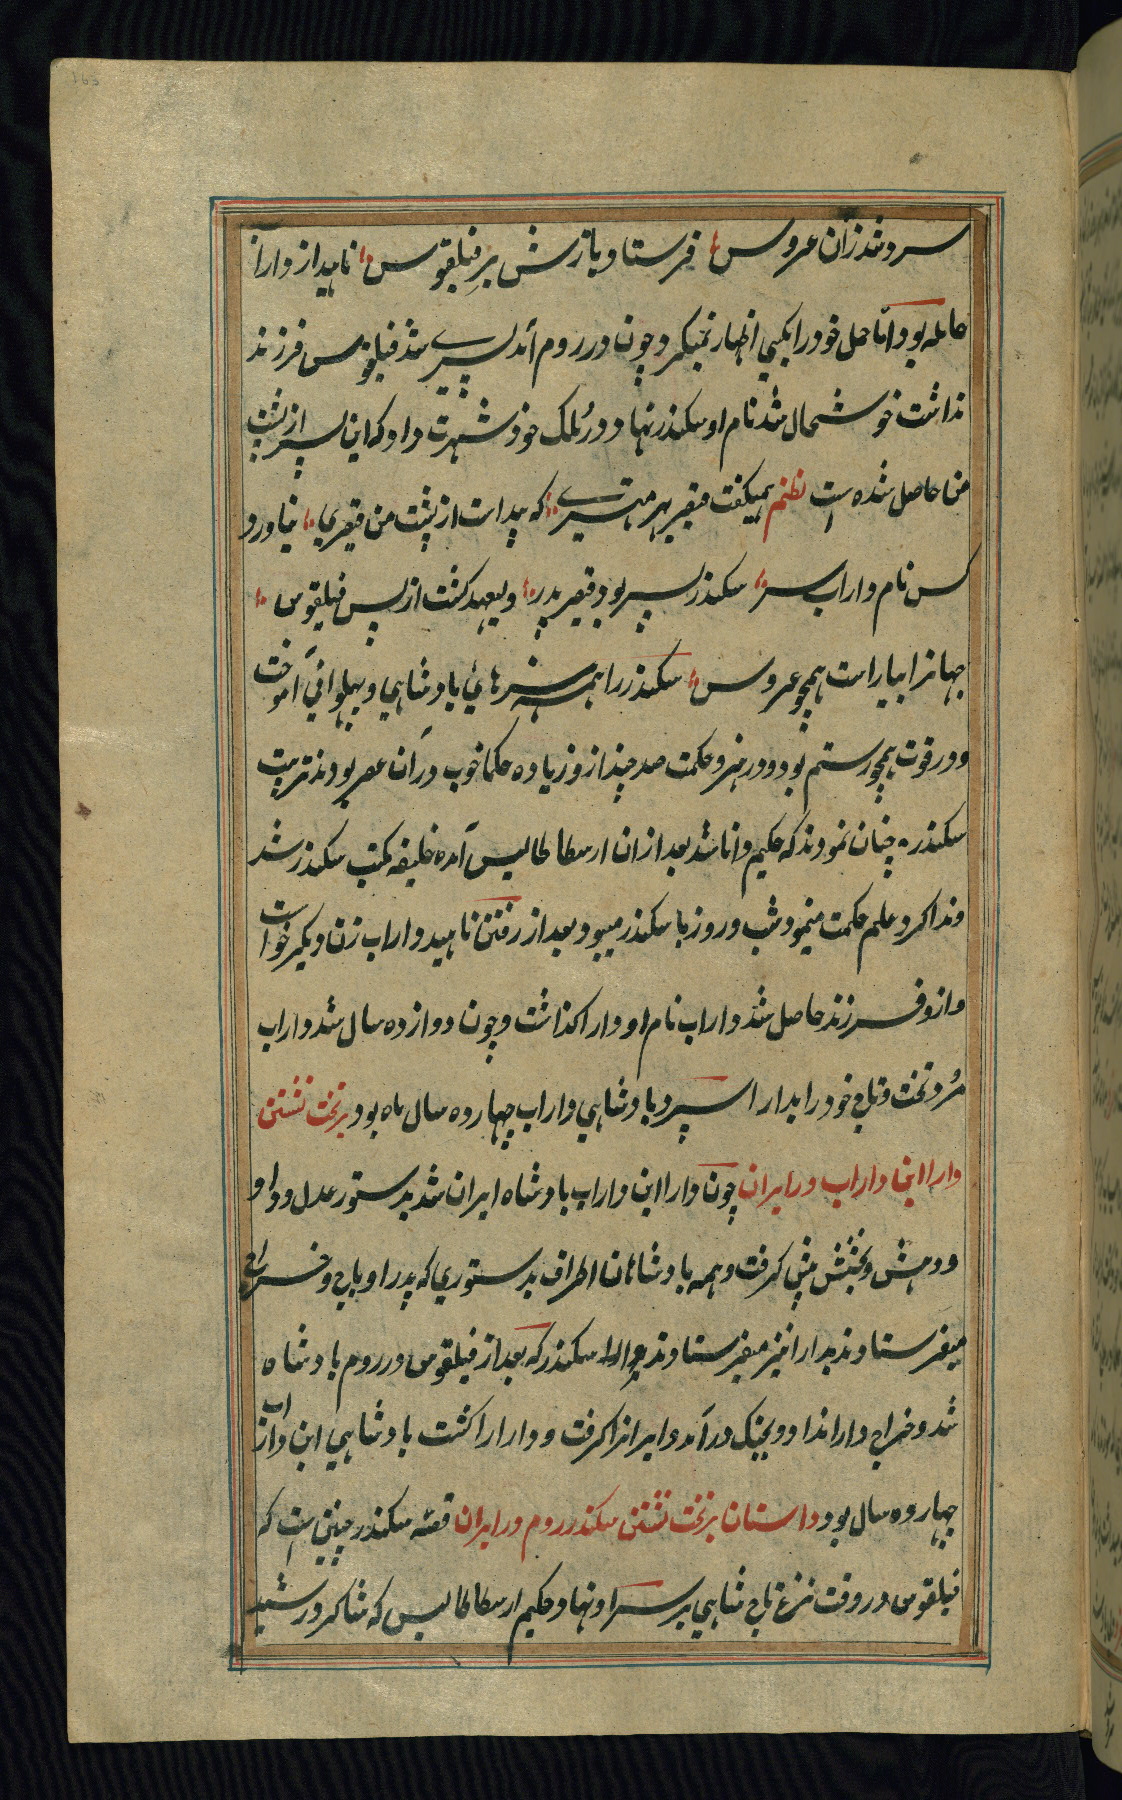 سرد شد زان عروس فرستاد بازش بر فیلقوس ناهید از داراب
حامله بود امّا حمل خود را بکسی اظهار نمیکرد چون در روم آمد پسری شد فیلقوس فرزند
نداشت خوشحال شد نام او سکندر نهاد و در مُلک خود شهرت داد که این پسر از پشت
من حاصل شده است نظم همیکفت قیصر بهر مهتری که پیداست از پشت من قیصری نیاورد
کس نام داراب بسر سکندر پسر بود قیصر پدر ولیعهد کشت از پس فیلقوس
جهانرا بیاراست همچو عروس سکندر را همه هنرهائ بادشاهی و پهلوانی آموخت
و در قوت همچو رستم بود و در هنر و حکمت صد چند ازو زیاده حکما خوب در آن عصر بودند تربیت
سکندر چنان نمودند که حکیم دانا شد بعد ازان ارسطاطالیس آمده خلیفه مکتب سکندر شد
و مذاکره علم حکمت مینمود شب و روز با سکندر میبود بعد از رفتن ناهید داراب زن دیکر خواست
و ازو فرزند حاصل شد داراب نام او دارا کذاشت و چون دوازده سال شد داراب
مُرد تخت و تاج خود را بدارا سپرد بادشاهی داراب چهارده سال ماه بود بر تخت نشستن
دارا ابن داراب در ایران چون دارا ابن داراب بادشاه ایران شد بدستور عدل و داد
و دهش و بخشش پیش کرفت و همه بادشاهان اطراف بدستوری که پدر او باج و خراج
میفرستادند بدارا نیز میفرستادند سکندر که بعد از فیلقوس در روم بادشاه
شد و خراج دارا نداد و بجنک در آمد و ایرانرا کرفت و دارا را کشت بادشاهی ابن داراب
چهارده سال بود داستان بر تخت نشستن سکندر روم در ایران قصّه سکندر چنین است که
فیلقوس در وقت نزع تاج شاهی بر سر او نهاد و حکیم ارسطاطالیس که شاکرد رشید